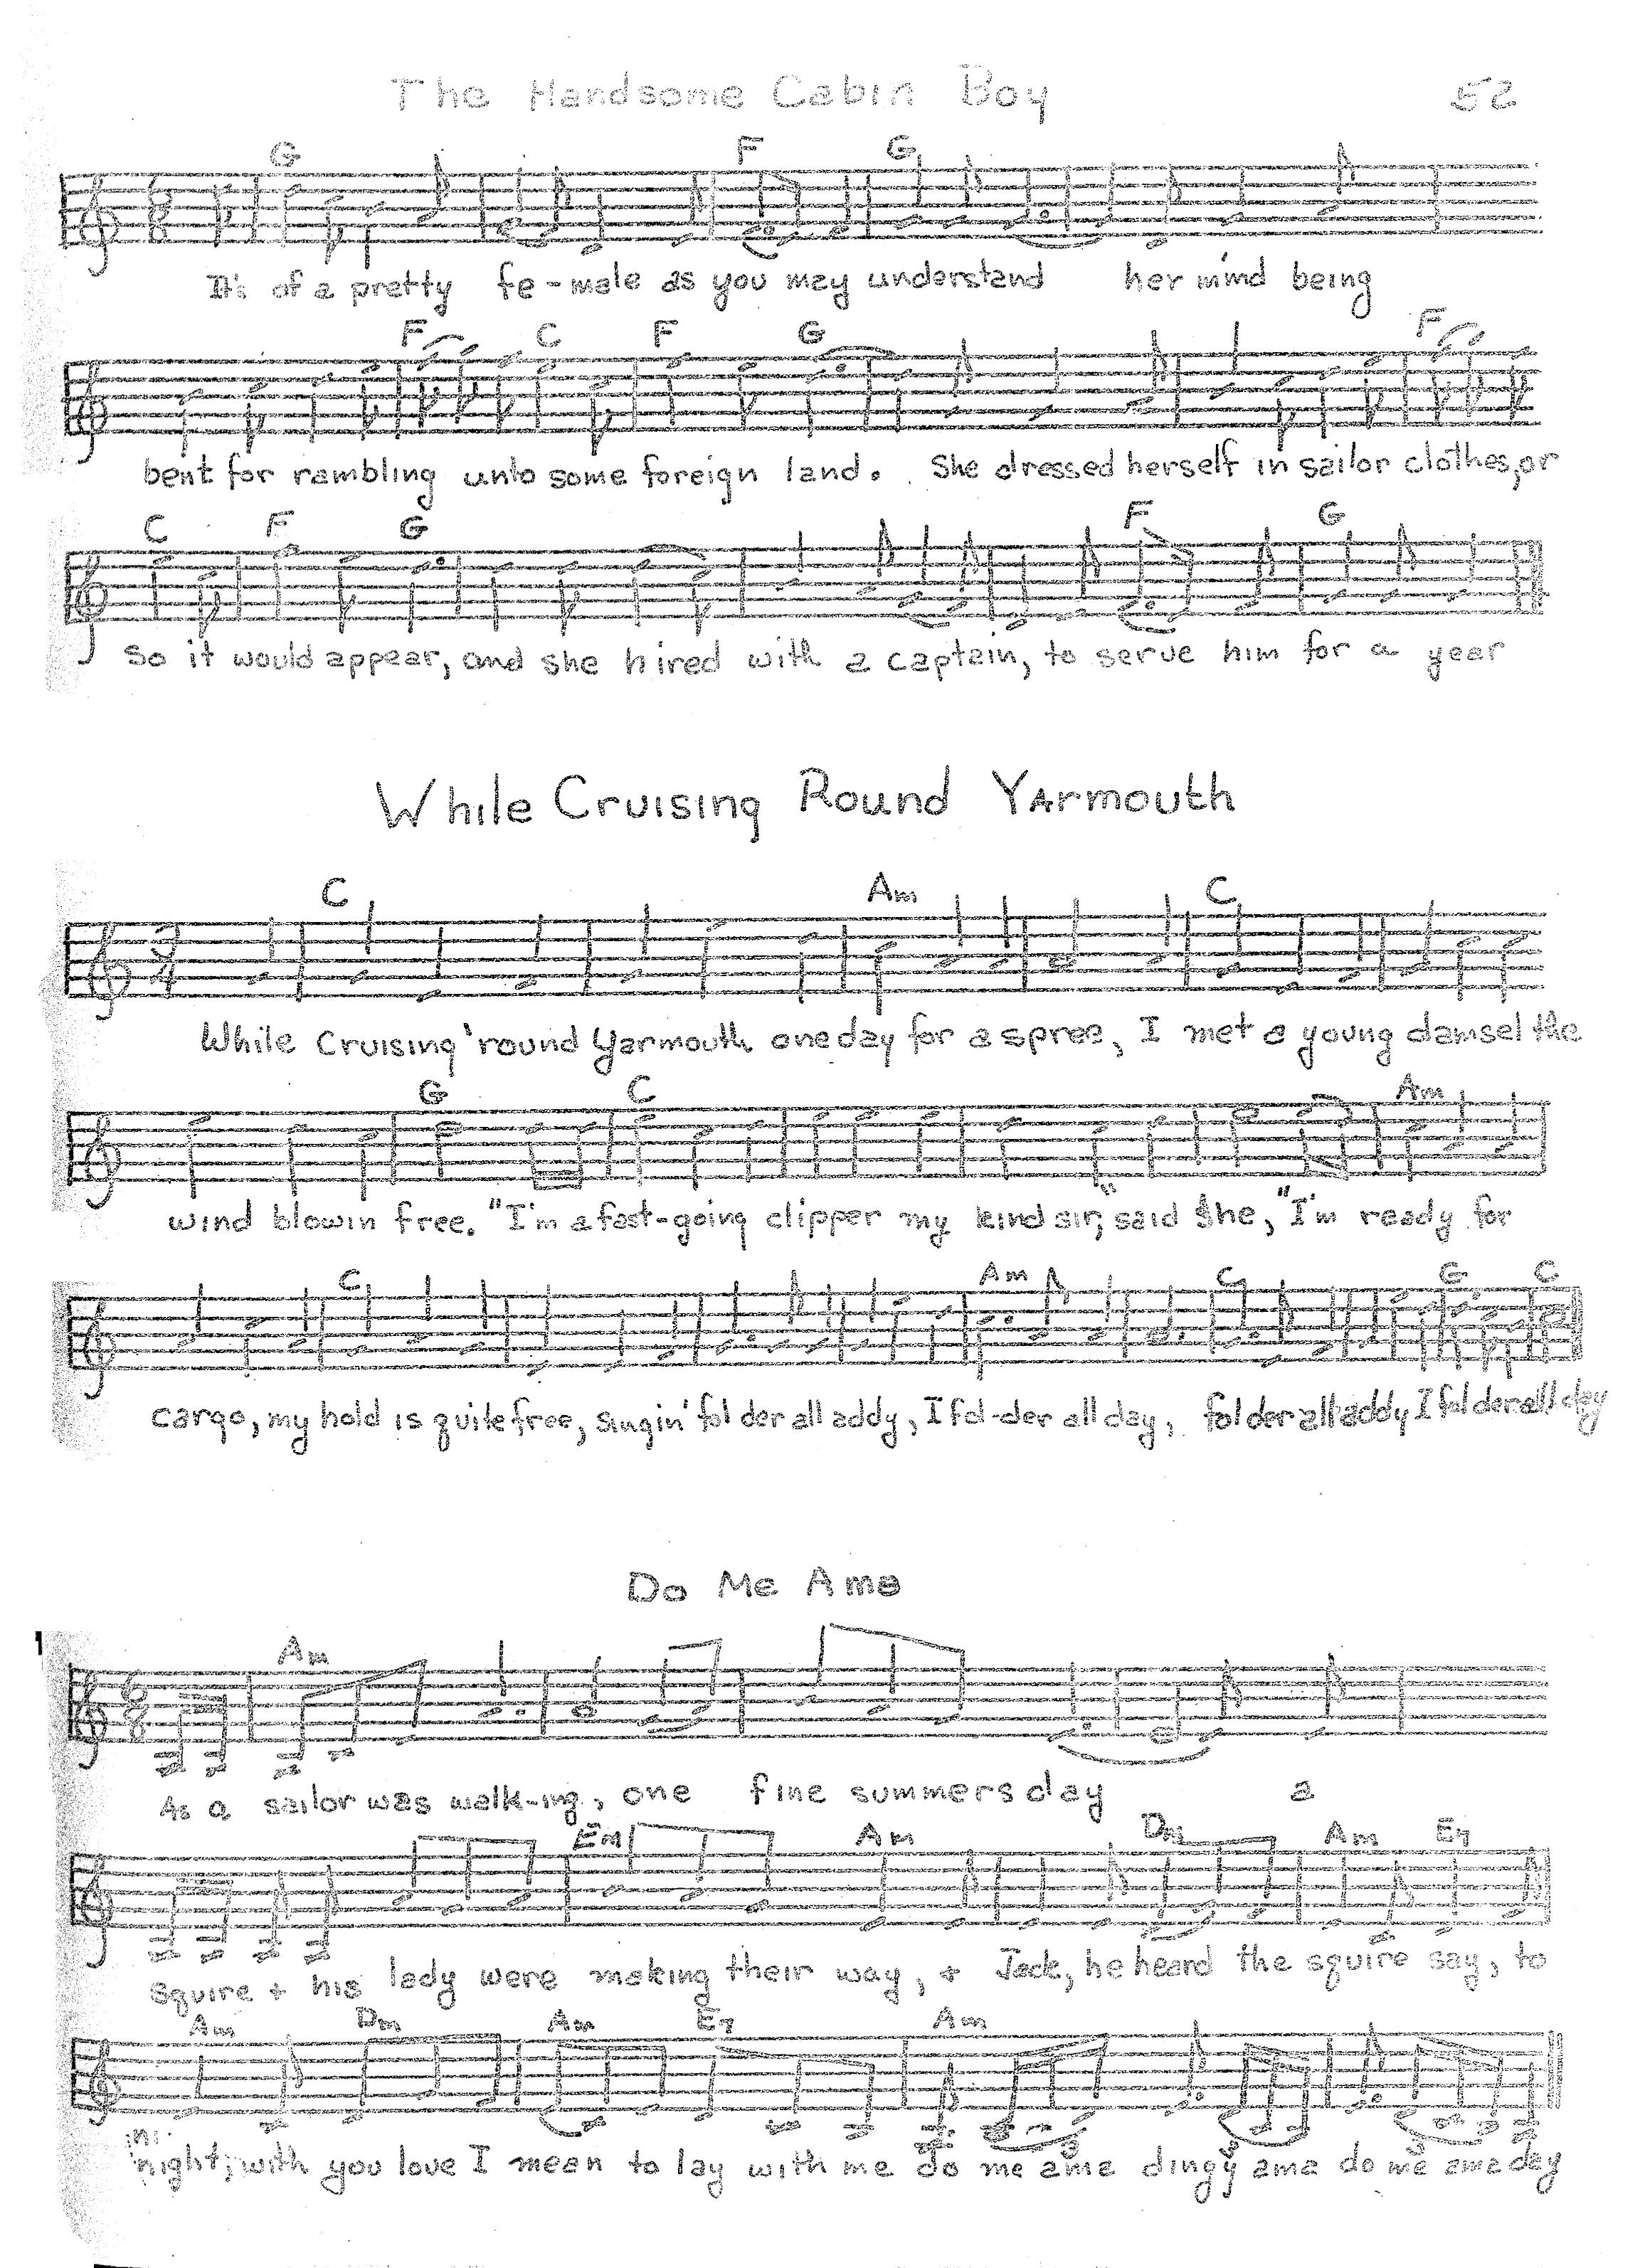 The Handsome Cabin Boy 52
G F G
It's of a pretty fe-male as you may understand her mind being
F C F G F
bent for rambling unto some foreign land. She dressed herself in sailor clothes, or
C F G F G
so it would appear, and she hired with a captain, to serve him for a year
While Cruising Round YArmouth
3 4
C Am C
While Cruising 'round Yarmouth one day for a spree, I met a young damsel the
G C Am
wind blowin free. "I'm a fast-going clipper my kind sir," said She, "I'm ready for
C Am C G C
cargo, my hold is quite free, singin' fol der all addy, I fol-der all day, fol der all addy I fol der all day
Do Me Ama
Am
6 8
As a sailor was walk-ing, one fine summers day a
Em Am Dm Am E7
squire + his lady were making their way, + Jack, he heard the squire say, to
Am Dm Am E7 Am
night, with you love I mean to lay with me do me ama dingy ama do me ama day